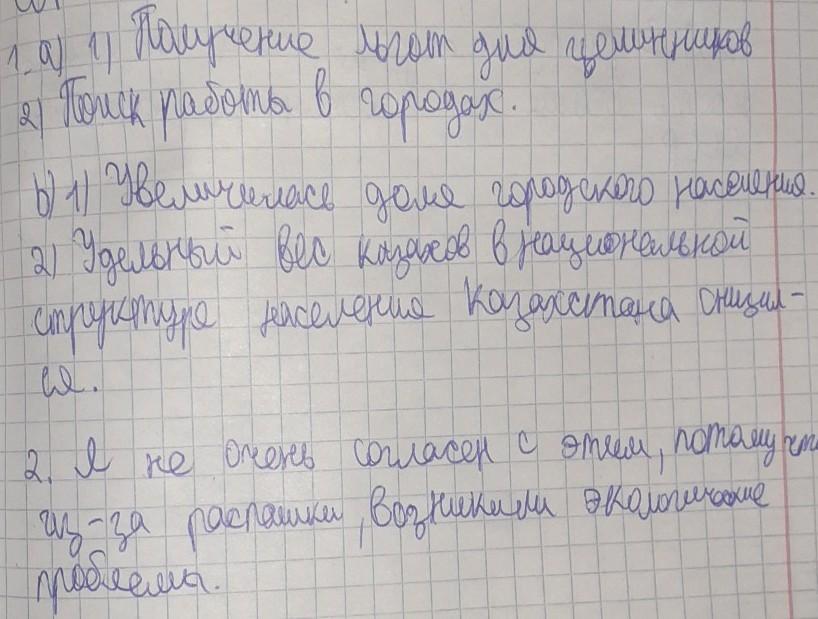 1. a) 1) Получение льгот для целинников
2) Поиск работы в городах.
b) 1) Увеличилась доля городского населения.
2) Удельный вес казахов в национальной
структуре населения Казахстана снизил-
ся.
2. Я не очень согласен с этим, потому чт
из-за распашки, возникили экологические
проблемы.